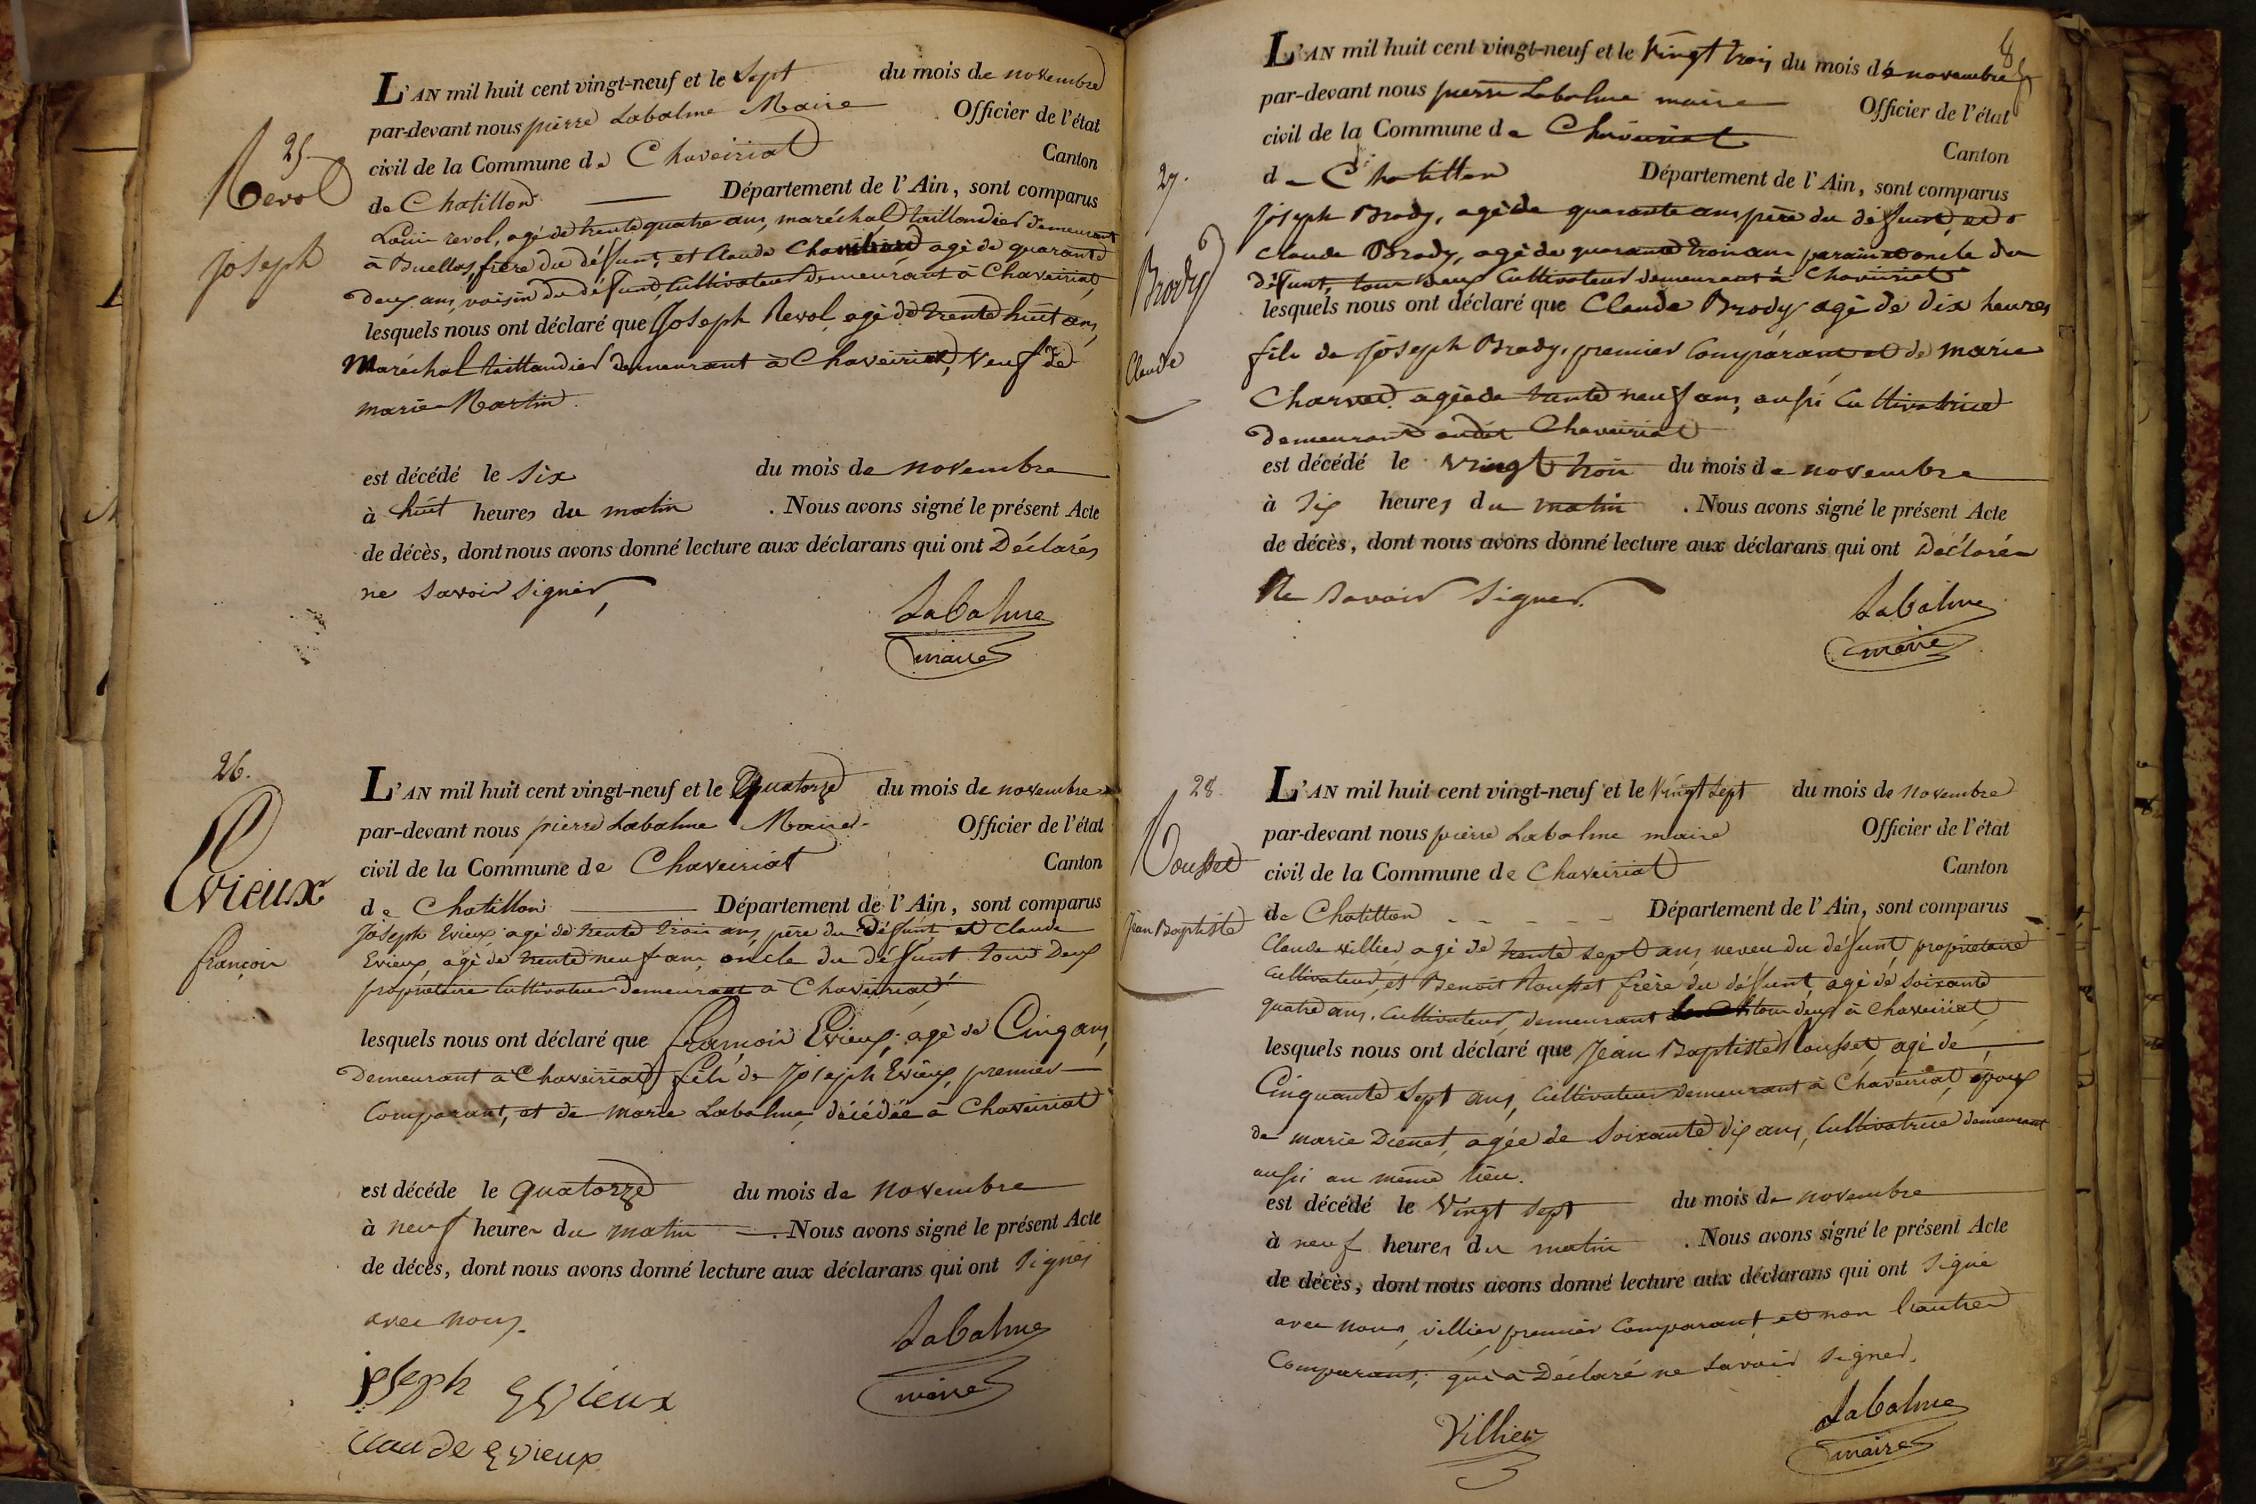 25
Revol
Joseph
L'AN mil huit cent vingt-neuf et le Sept du mois de novembre
par-devant nous pierre Labalme Maire Officier de l'état
civil de la Commune de Chaveiriat Canton
de Chatillon Département de l'Ain, sont comparus
Louis revol, agé de trente quatre ans, maréchal taillandier demeurant
à Buellas, frère du défunt, et Claude agé de quarante
deux ans, voisin du défunt, Cultivateur demeurant à Chaveiriat,
lesquels nous ont déclaré que Joseph Revol, agé de trente huit ans,
Maréchal taillandier demeurant à Chaveiriat, veuf de
marie Martin.
est décédé le six du mois de novembre
à huit heures du matin . Nous avons signé le présent Acte
de décès, dont nous avons donné lecture aux déclarans qui ont Déclarés
ne savoir signer,
Labalme
maire
26.
Evieux
françois
L'AN mil huit cent vingt-neuf et le Quatorze du mois de novembre
par-devant nous pierre Labalme Maire Officier de l'état
civil de la Commune de Chaveiriat Canton
de Chatillon Département de l'Ain, sont comparus
Joseph Evieux agé de trente trois ans, père du défunt et Claude
Evieux, agé de trente neuf ans, oncle du defunt tous Deux
propriétaire Cultivateur demeurant à Chaveiriat
lesquels nous ont déclaré que françois Evieux, agé de Cinq ans,
Demeurant à Chaveiriat, fils de Joseph Evieux, premier
Comparant, et de marie Labalme, décédée à Chaveiriat
est décéde le quatorze du mois de novembre
à neuf heures du matin . Nous avons signé le présent Acte
de décès, dont nous avons donné lecture aux déclarans qui ont signés
avec nous.
Labalme
maire
joseph Evieux
claude Evieux
8
27.
Brody
Claude
L'AN mil huit cent vingt-neuf et le Vingt trois du mois de novembre
par-devant nous pierre Labalme maire Officier de l'état
civil de la Commune de Chaveiriat Canton
de Chatillon Département de l'Ain, sont comparus
Joseph Brody, agé de quarante ans père du défunt, et
Claude Brody, agé de quarante trois ans parain et oncle du
défunt, tous deux Cultivateur demeurant à Chaveiriat
lesquels nous ont déclaré que Claude Brody agé de dix heures
fils de Joseph Brody, premier Comparant et de marie
Charvet, agée de trente neuf ans, aussi Cultivatrice
demeurant audit Chaveiriat
est décédé le vingt trois du mois de novembre
à six heures du matin . Nous avons signé le présent Acte
de décès, dont nous avons donné lecture aux déclarans qui ont Déclarés
Ne savoir signer.
Labalme
maire
28.
Rousset
Jean Baptiste
L'AN mil huit cent vingt-neuf et le Vingt sept du mois de novembre
par-devant nous pierre Labalme maire Officier de l'état
civil de la Commune de Chaveiriat Canton
de Chatillon Département de l'Ain, sont comparus
Claude villier agé de trente sept ans, neveu du défunt, propriétaire
Cultivateur, et Benoit Rousset frère du défunt, agé de soixante
quatre ans, Cultivateur, demeurant tous deux à Chaveiriat,
lesquels nous ont déclaré que Jean Baptiste Rousset, agé de
Cinquante sept ans, Cultivateur demeurant à Chaveiriat, epoux
de marie Dienet, agée de Soixante dix ans, Cultivatrice demeurant
aussi au même lieu.
est décédé le Vingt sept du mois de novembre
à neuf heures du matin . Nous avons signé le présent Acte
de décès, dont nous avons donné lecture aux déclarans qui ont signé
avec nous, villier premier Comparant, et non l'autre
Comparant, qui a Déclaré ne savoir signer.
Villier
Labalme
maire